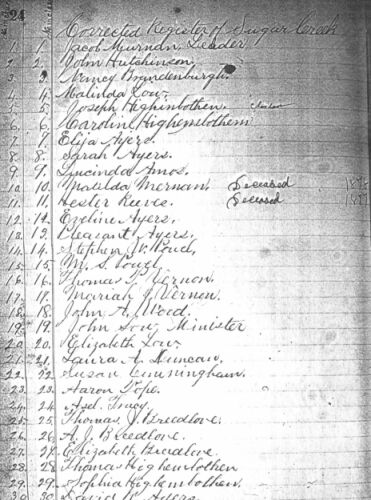 24
Corrected Register of Sugar Creek
1. 1. Jacob Leader
2. 2. John Hutchinson.
3. 3. Nancy Brandenburgh.
4. 4. Malinda Low.
5. 5. Joseph Highinbothen.
6. 6. Caroline
7. 7. Eliza Ayers.
8. 8. Sarah Ayers.
9. 9. Lucinda Amos.
10. 10. Matilda Deceased
11. 11. Hester Reeves. Deceased
12. Eveline Ayers.
13. Pleasant Ayers.
14. 14. Stephen W.
15. 15. M. S.
16. 16. Thomas Vernon.
17. 17. Mariah J. Vernon.
18. 18. John A. Wood.
19. 19. John Minister
20. 20. Elizabeth Low.
21. 21. Laura A. Duncan.
22. 22. Susan Cunningham.
23. 23. Aaron Pope.
24. 24. Asel Tracy.
25. 25. Thomas J. Breedlove.
26. 26. A. J. Breedlove.
27. 27. Elizabeth Breedlove.
28. 28. Thomas Highembothen
29. 29. Sophia Highembothen.
30. 30. David Ayers